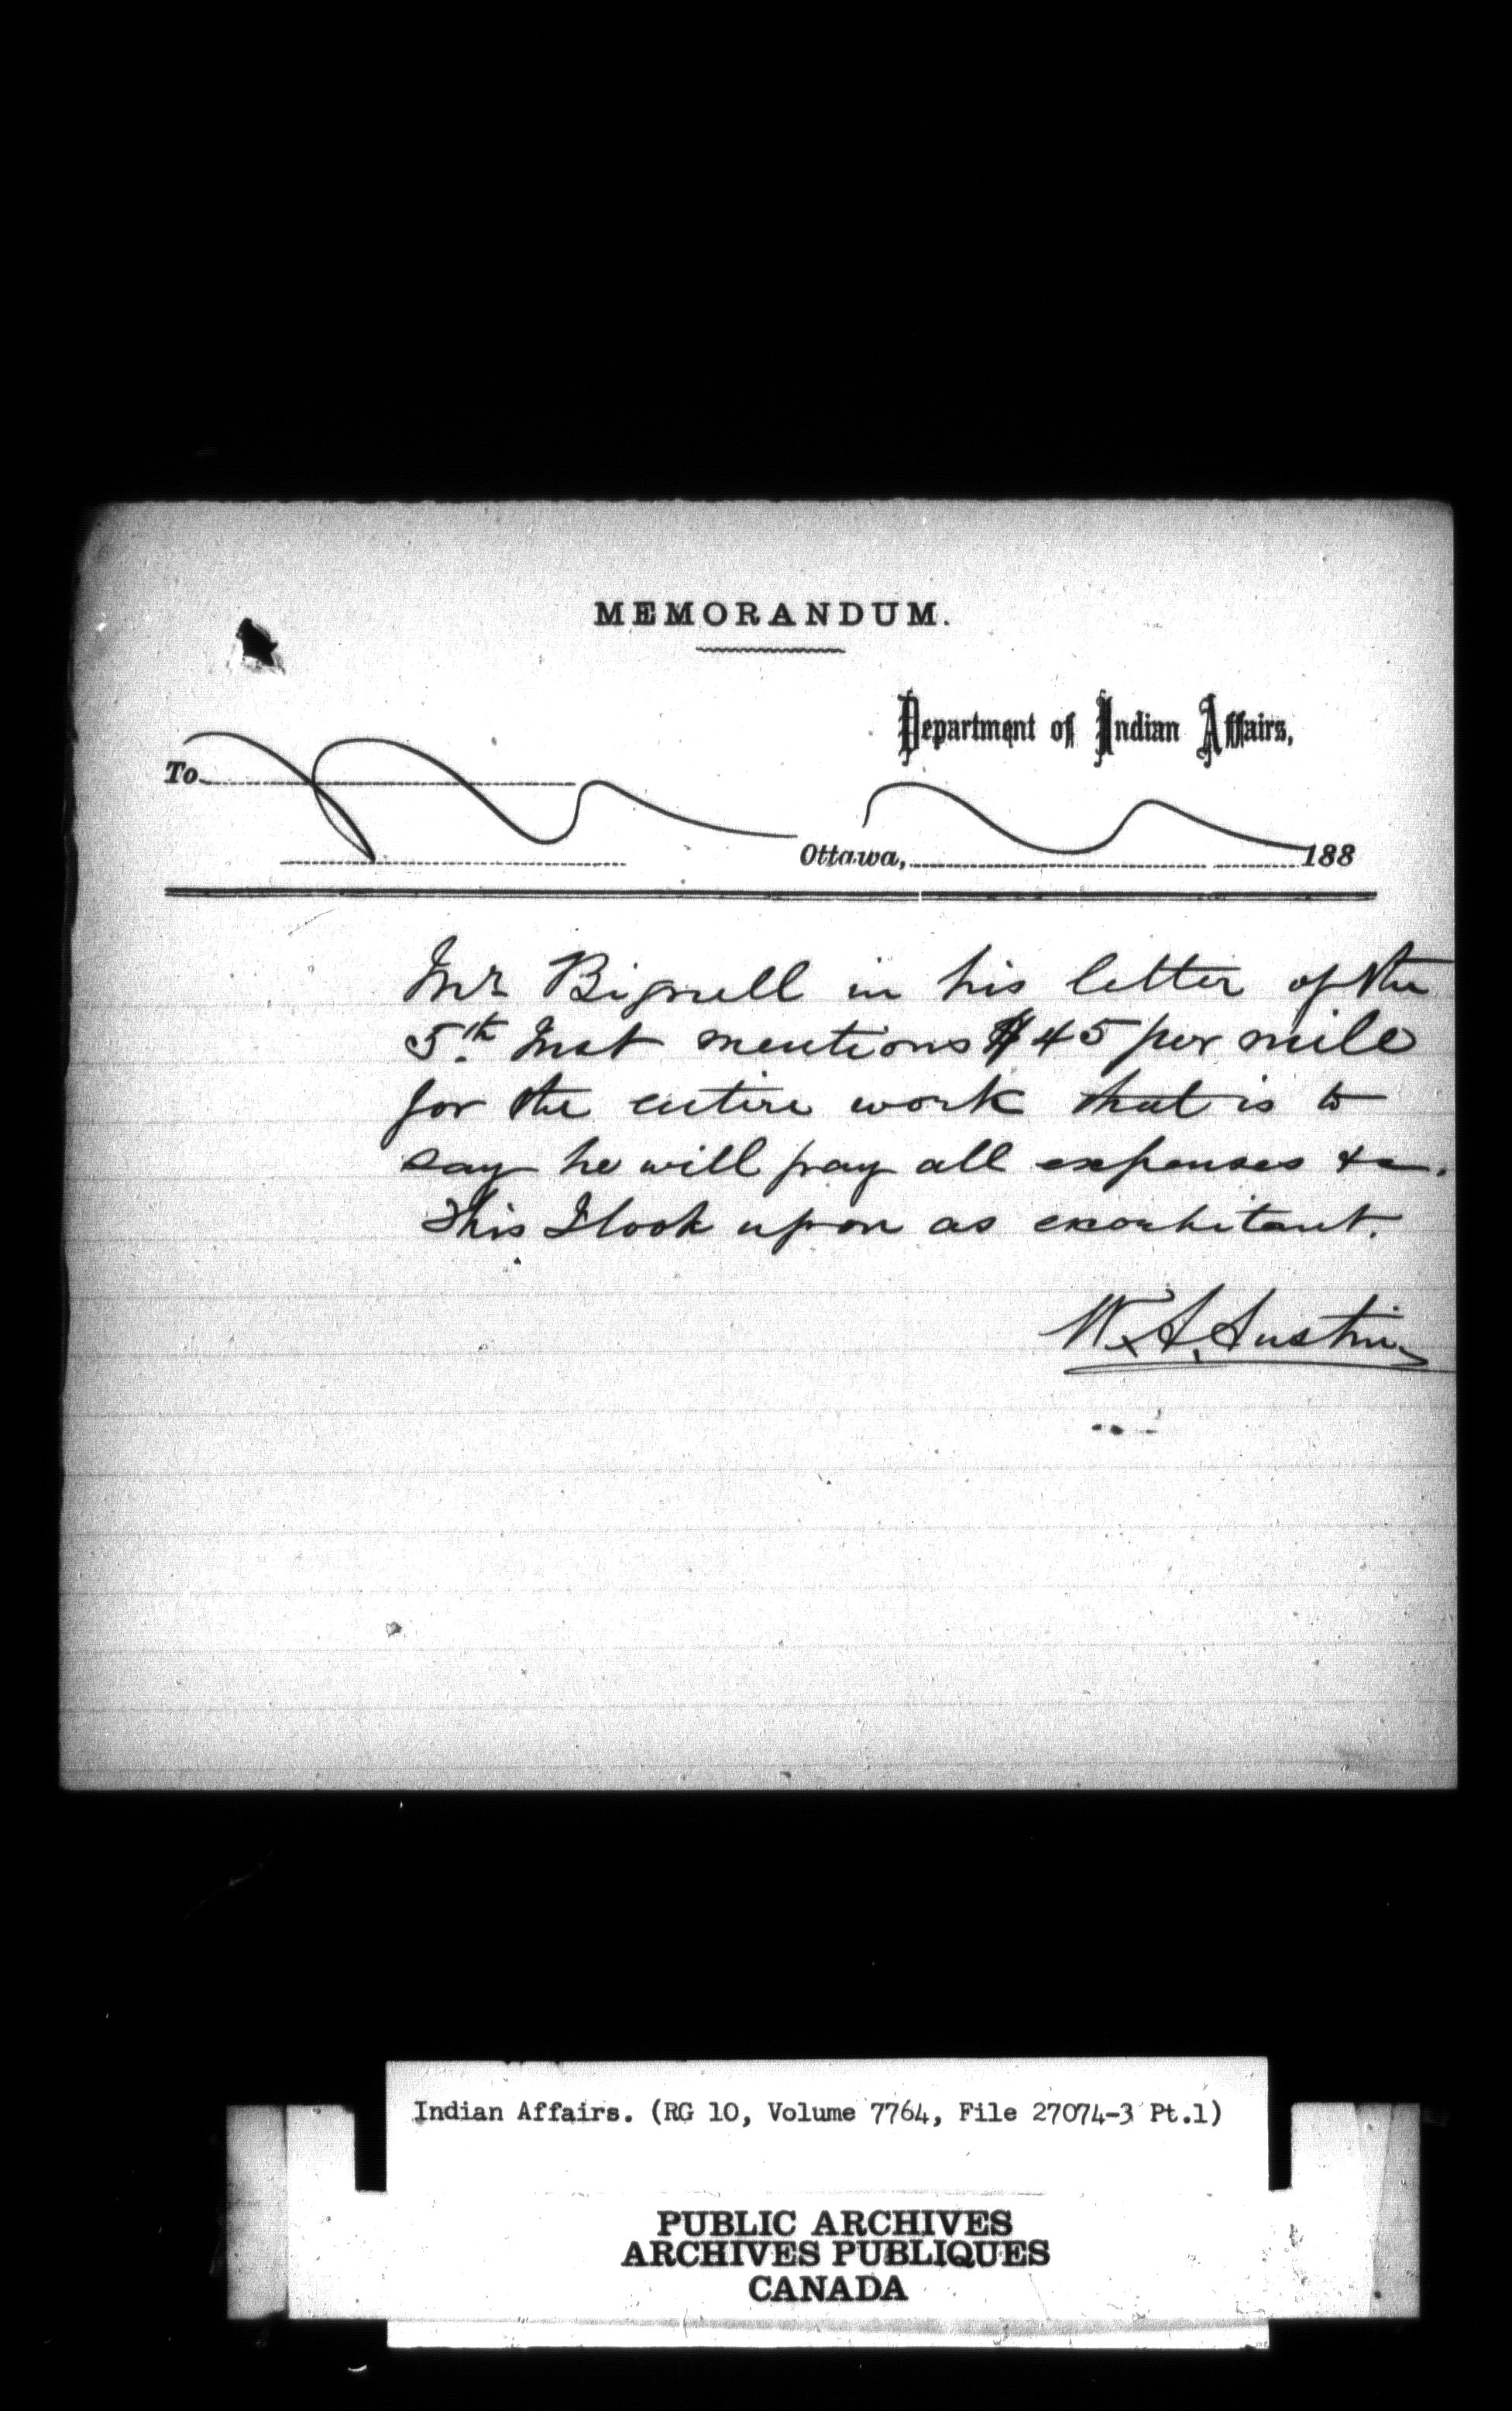 MEMORANDUM.
Department of Indian Affairs,
To
Ottawa, 188
Mr Bignell in his letter of the
5th Inst mentions $45 per mile
for the entire work that is to
say he will pay all expenses &c.
This I look upon as exorbitant.
W. A. Austin
Indian Affairs. (RG 10, Volume 7764, File 27074-3 Pt.1)
PUBLIC ARCHIVES
ARCHIVES PUBLIQUES
CANADA